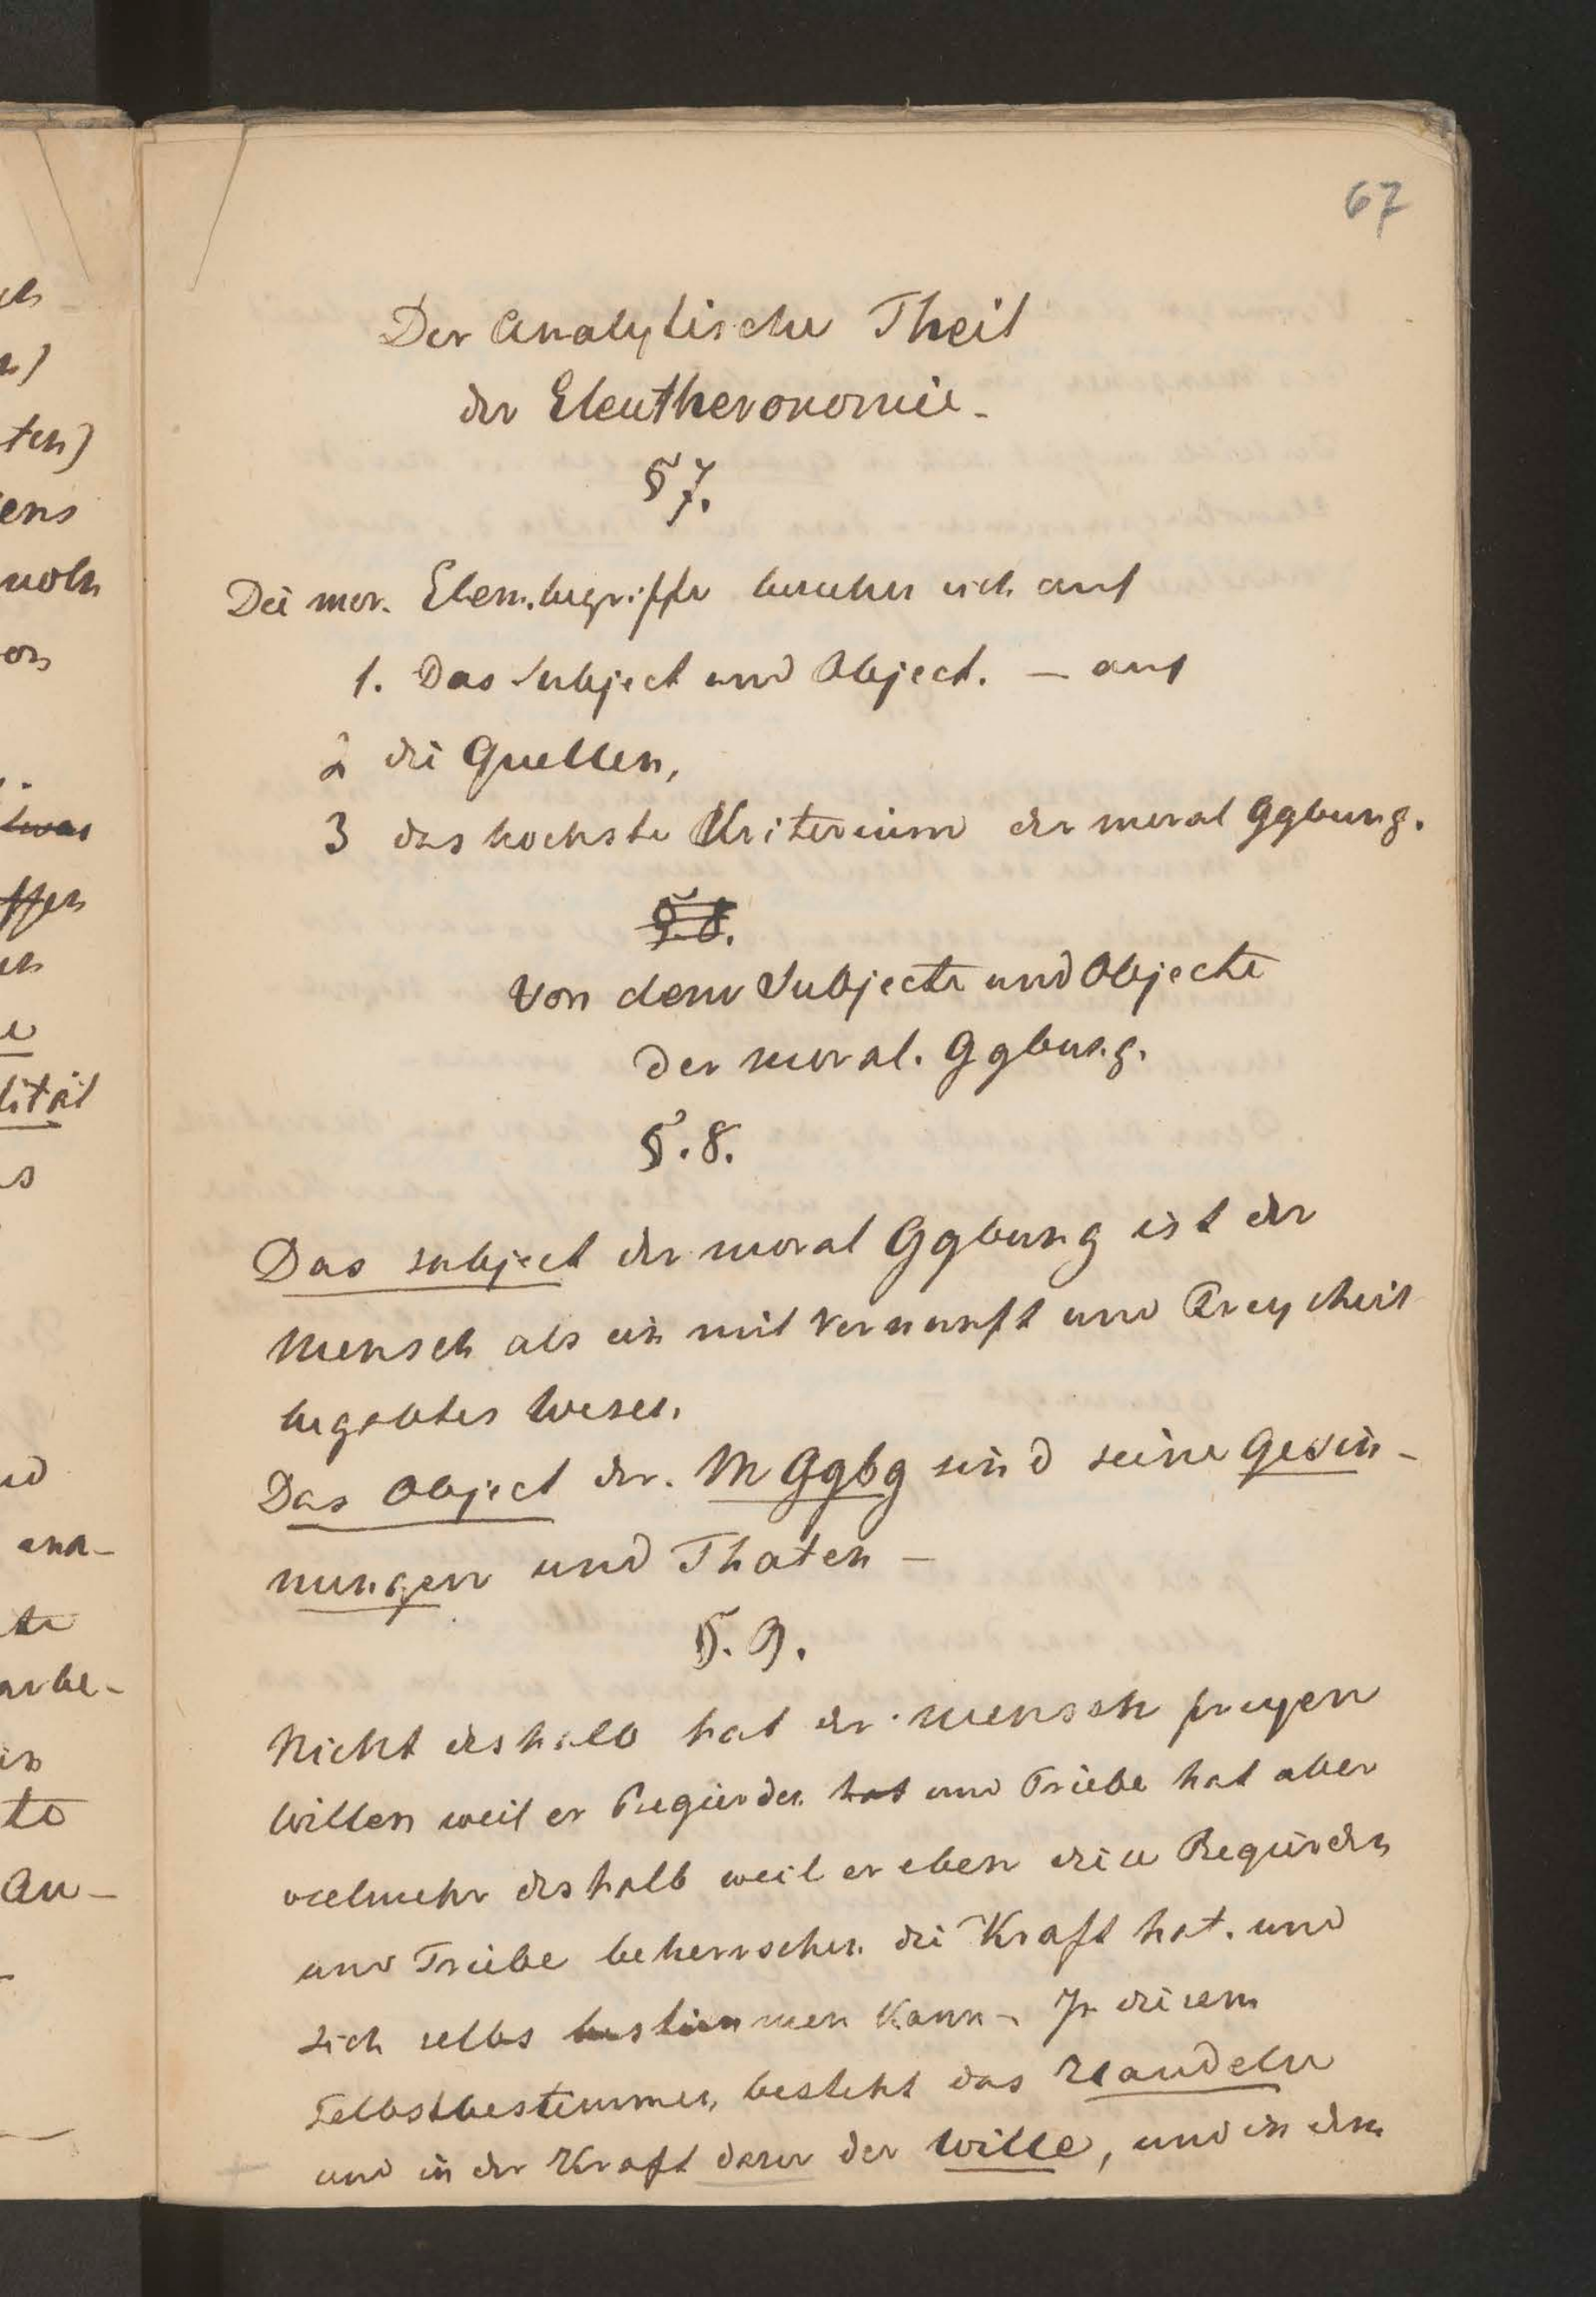 67
Der Analytische Theil
der Eleutheronomie.
§ 7.
Die mor. Elem. begriffe beziehen sich auf
1. Das Subject und Object. — auf
2 die Quellen,
3 das hochste Kriterium der moral Ggbung.
§. 8.
Von dem Subjecte und Objecte
der moral. Ggbung.
§. 8.
Das Subject der moral Ggbung ist der
Mensch als ein mit Vernunft und Freyheit
begabtes Wesen.
Das Object der. M Ggbg sind seine Gesin-
nungen und Thaten —
§. 9.
Nicht deshalb hat der Mensch freyen
Willen weil er Begierden hat und Triebe hat aber
vielmehr deshalb weil er eben diese Begierden
und Triebe beherrschen die Kraft hat. und
sich selbs bestimmen kann – In diesem
Selbstbestimmen, besteht das Handeln
und in der Kraft dazu der Wille, und in dem
ten)
iens
lität
ena-
te
arbe-
te
an-